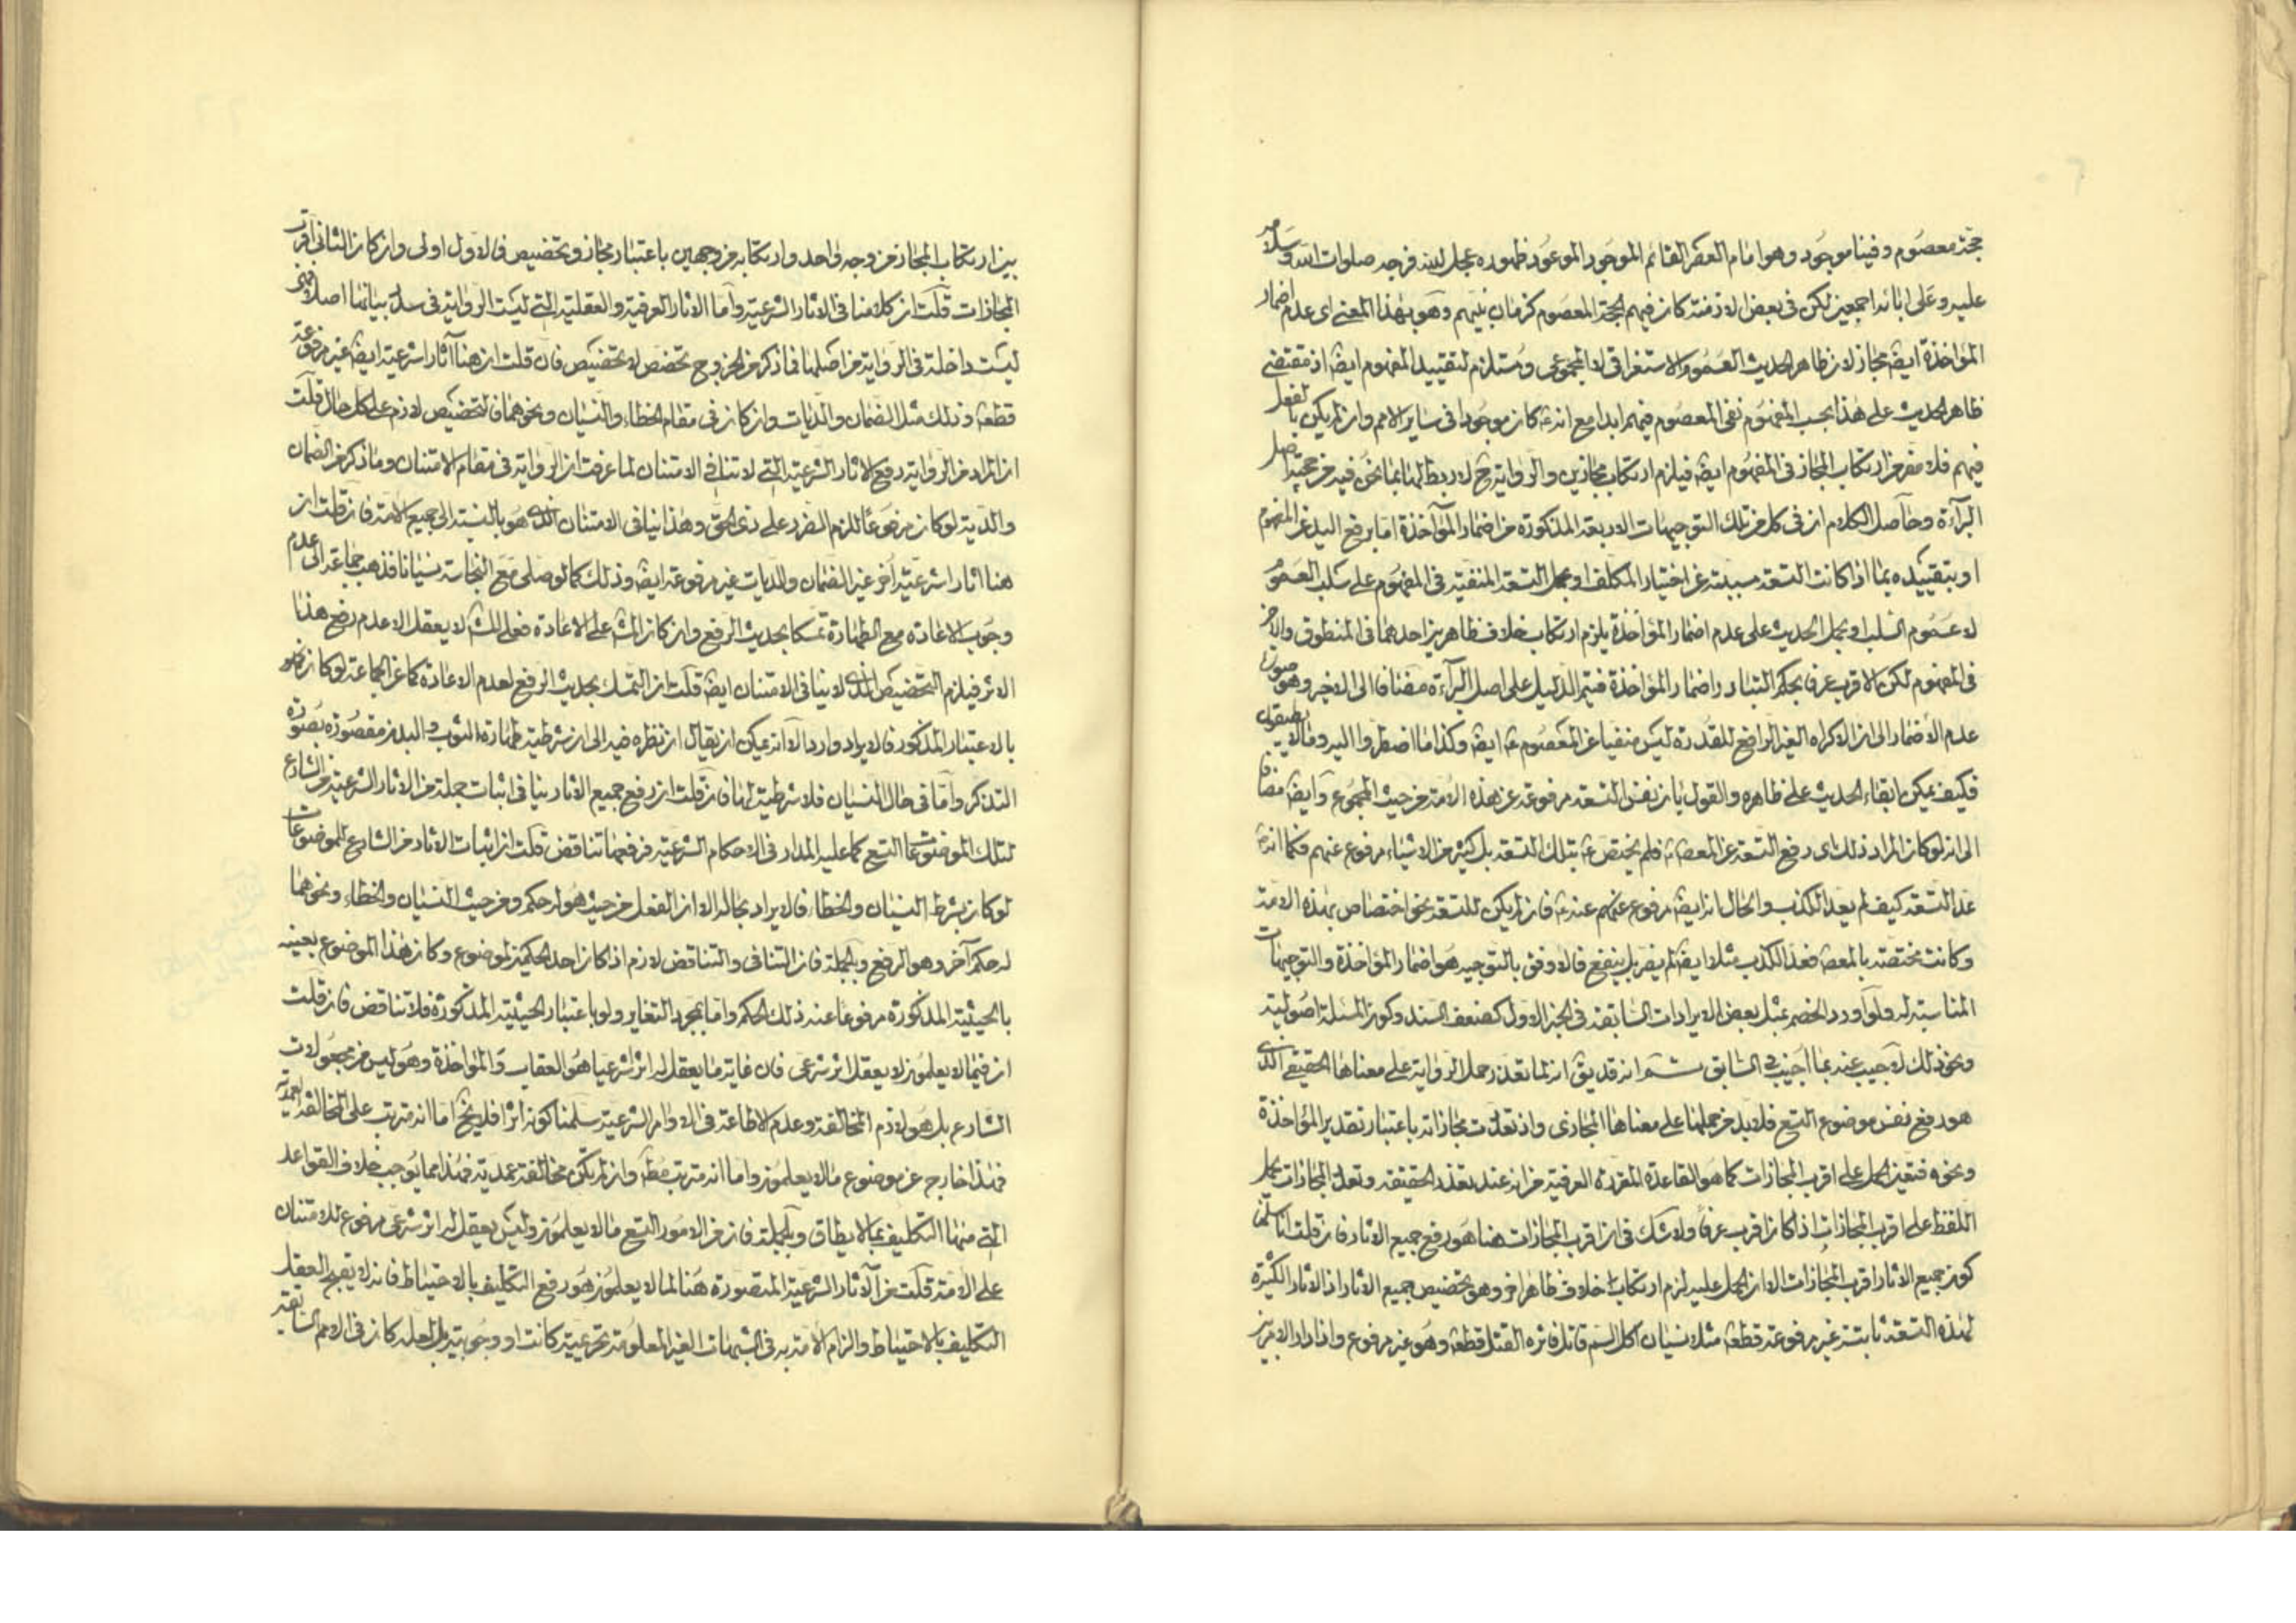 حجة معصوم وفينا موجود وهو امام العصر القائم الموجود الموعود ظهوره عجل الله فرجه صلوات الله وسلامه
عليه وعلى ابائه اجمعين لكن في بعض الازمنة كان فيهم الحجة المعصوم كزمان نبيهم وهو بهذا المعنى اى عدم اضمار
المؤاخذة ايضا مجاز لان ظاهر الحديث العموم الاستغراقى لا المجموعى ومستلزم لتقييد المفهوم ايضا اذ مقتضى
ظاهر الحديث على هذا بحسب المفهوم نفى المعصوم فيهم ابدا مع انه كان موجودا فى ساير الامم وان لم يكن بالفعل
فيهم فلا مفر من ارتكاب المجاز فى المفهوم ايضا فيلزم ارتكاب مجازين والرواية ح لا ربط لها بما نحن فيه من حجية اصل
البرآءة وحاصل الكلام ان فى كل من تلك التوجيهات الاربعة المذكورة من اضمار المؤآخذة اما برفع اليد عن المفهوم
او بتقييده بما اذا كانت التسعة مسببة عن اختيار المكلف او بحمل التسعة المنفية فى المفهوم على سلب العموم
لا عموم السلب او بحمل الحديث على عدم اضمار المؤاخذة يلزم ارتكاب خلاف ظاهرين احدهما فى المنطوق والاخر
فى المفهوم لكن الاقرب عرفا بحكم التبادر اضمار المؤاخذة فيتم الدليل على اصل البرآءة مضافا الى الاخير وهو صورة
عدم الاضمار الى ان الاكراه الغير الرافع للقدرة ليس منفيا عن المعصوم ع ايضا وكذا ما اضطروا اليه وما لا يطيقون
فكيف يمكن ابقاء الحديث على ظاهره والقول بان نفس التسعة مرفوعة عن هذه الامة من حيث المجموع وايضا مضافا
الى انه لو كان المراد ذلك اى رفع التسعة عن المعصوم ع فلم يختص ع بتلك التسعة بل كثير من الاشياء مرفوع عنهم فكما انه
عد التسعة كيف لم يعد الكذب والحال انه ايضا مرفوع عنهم عنده فان لم يكن للتسعة نحو اختصاص بهذه الامة
وكانت مختصة بالمعصوم فعد الكذب مثلا ايضا لم يضر بل ينفع فالاوفق بالتوجيه هو اضمار المؤاخذة والتوجيهات
المناسبة له ولو آورد الخصم بمثل بعض الايرادات السابقة فى الخبر الاول كضعف السند وكون المسئلة اصولية
ونحو ذلك لاجيب عنه بما اجيب فى السابق ثم انه قد يق انه لما تعذر حمل الرواية على معناها الحقيقى الذى
هو رفع نفس موضوع التسع فلابد من حملها على معناها المجازى واذ تعددت مجازاته باعتبار تقدير المؤاخذة
ونحوه فتعين الحمل على اقرب المجازات كما هو القاعدة المقررة العرفية من انه عند تعذر الحقيقة وتعدد المجازات يحمل
اللفظ على اقرب المجازات اذا كان اقرب عرفا ولا شك فى ان اقرب المجازات هنا هو رفع جميع الاثار فان قلت انا سلمنا
كون جميع الاثار اقرب المجازات الا ان الحمل عليه لزم ارتكاب خلاف ظاهر اخر وهو تخصيص جميع الاثار اذ الاثار الكثيرة
لهذه التسعة ثابتة غير مرفوعة قطعا مثلا نسيان اكل السم قاتل فاثره القتل قطعا وهو غير مرفوع واذا دار الامر بين
بين ارتكاب المجاز من وجه واحد وارتكابه من وجهين باعتبار مجاز وتخصيص فالاول اولى وان كان الثانى اقرب
المجازات قلت ان كلامنا فى الاثار الشرعية واما الاثار العرفية والعقلية التى ليست الرواية فى سلك بيانها اصلا فهى
ليست داخلة فى الرواية من اصلها فما ذكر من الخروج تخصص لا تخصيص فان قلت ان هنا آثار شرعية ايضا غير مرفوعة
قطعا وذلك مثل الضمان والديات وان كان فى مقام الخطاء والنسيان ونحوهما فالتخصيص لازم على كل حال قلت
ان المراد من الرواية رفع الاثار الشرعية التى لا تنافى الامتنان لما عرفت ان الرواية فى مقام الامتنان وما ذكر من الضمان
والدية لو كان مرفوعا للزم الضرر على ذى الحق وهذا ينافى الامتنان الذى هو بالنسبة الى جميع الامة فان قلت ان
هنا اثار شرعية اخر غير الضمان والديات غير مرفوعة ايضا وذلك كما لو صلى مع النجاسة نسيانا فذهب جماعة الى عدم
وجوب الاعادة مع الطهارة تمسكا بحديث الرفع وان كان المش على الاعادة فعلى المش لا يعقل الا عدم رفع هذا
الاثر فيلزم التخصيص الذى لا ينافى الامتنان ايضا قلت ان التمسك بحديث الرفع لعدم الاعادة كما عن الجماعة لو كان
بالاعتبار المذكور فالايراد وارد الا انه يمكن ان يقال ان نظره فيه الى ان شرطية طهارة الثوب والبدن مقصورة بصورة
التذكر واما فى حال النسيان فلا شرطية لها فان قلت ان رفع جميع الاثار ينافى اثبات جملة من الاثار الشرعية من الشارع
لتلك الموضوعات التسع كما عليه المدار فى الاحكام الشرعية فرفعها تناقض قلت ان اثبات الاثار من الشارع للموضوعات
لو كان بشرط النسيان والخطاء فالايراد بحاله الا ان الفعل من حيث هو له حكم ومن حيث النسيان والخطاء ونحوهما
له حكم آخر وهو الرفع وبالجملة فان التنافى والتناقض لازم اذا كان احد الحكمين لموضوع وكان هذا الموضوع بعينه
بالحيثية المذكورة مرفوعا عنه ذلك الحكم واما بمجرد التغاير ولو باعتبار الحيثية المذكورة فلا تناقض فان قلت
ان فيما لا يعلمون لا يعقل اثر شرعى فان غاية ما يعقل له اثر شرعيا هو العقاب والمؤاخذة وهو ليس من مجعولات
الشارع بل هو لازم المخالفة وعدم الاطاعة فى الاوامر الشرعية سلمنا كونه اثرا فلا يخ اما انه مترتب على المخالفة العمدية
فهذا خارج عن موضوع ما لا يعلمون واما انه مترتب مط وان لم يكن مخالفة عمدية فهذا مما يوجب خلاف القواعد
التى منها التكليف بما لا يطاق وبالجملة فان من الامور التسع ما لا يعلمون وليس يعقل له اثر شرعى مرفوع للامتنان
على الامة قلت من الآثار الشرعية المتصورة هنا لما لا يعلمون هو رفع التكليف بالاحتياط فانه لا يقبح العقل
التكليف بالاحتياط والزام الامة به فى الشبهات الغير المعلومة تحريمية كانت او وجوبية بل لعله كان فى الامم السابقة